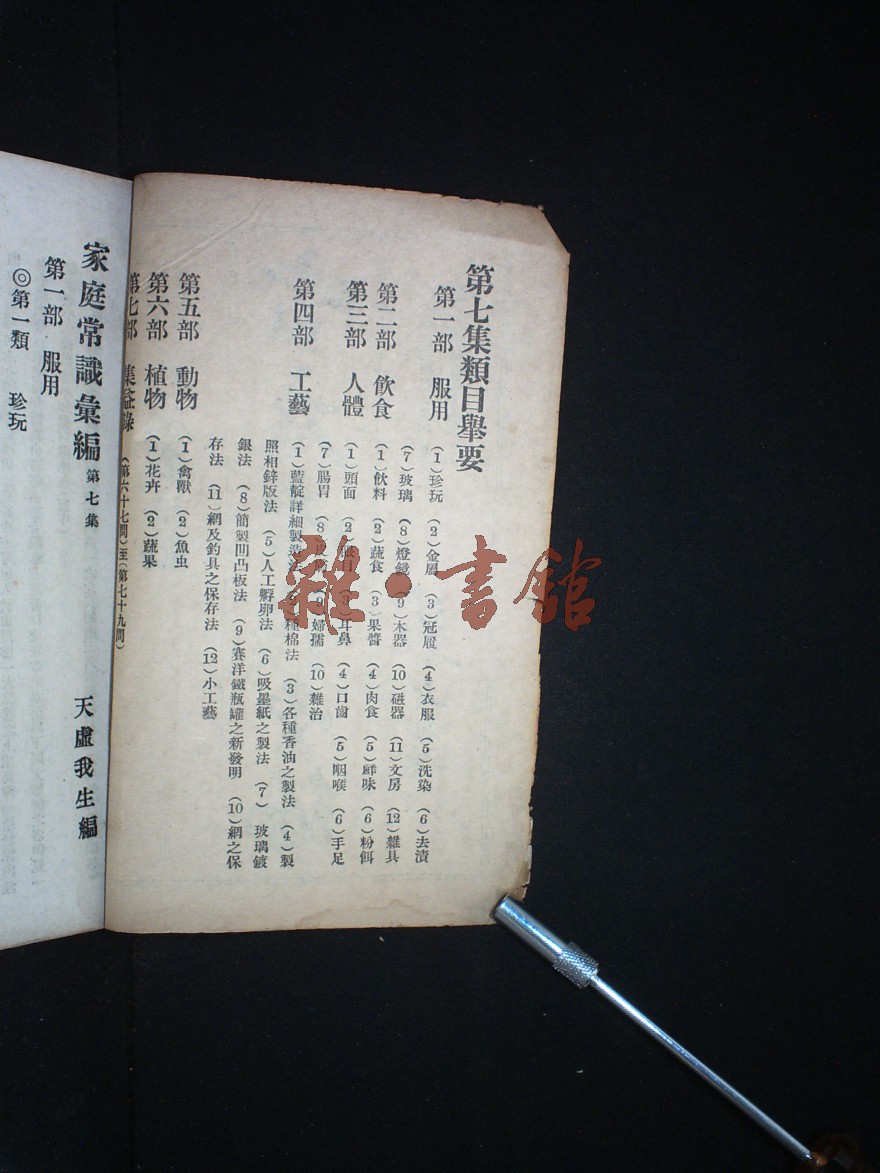 第七集類目舉要
第一部 服用
(1)珍玩 (2)金屬 (3)冠履 (4)衣服 (5)洗染 (6)去漬
(7)玻璃 (8)燈鏡 (9)木器 (10)磁器 (11)文房 (12)雜具
第二部 飲食
(1)飲料 (2)蔬食 (3)果醬 (4)肉食 (5)鮮味 (6)粉餌
第三部 人體
(1)頭面 (2)眼目 (3)耳鼻 (4)口齒 (5)咽喉 (6)手足
(7)腸胃 (8)皮 (9)婦孺 (10)雜治
第四部 工藝
(1)藍靛詳細製造 種棉法 (3)各種香油之製法 (4)製
照相鋅版法 (5)人工孵卵法 (6)吸墨紙之製法 (7)玻璃鍍
銀法 (8)簡製凹凸板法 (9)賽洋鐵瓶罐之新發明 (10)網之保
存法 (11)網及釣具之保存法 (12)小工藝
第五部 動物
(1)禽獸 (2)魚虫
第六部 植物
(1)花卉 (2)蔬果
第七部 集益錄
(第六十七問)至(第七十九問)
家庭常識彙編 第七集 天虛我生編
第一部 服用
◎第一類 珍玩
雜·書館